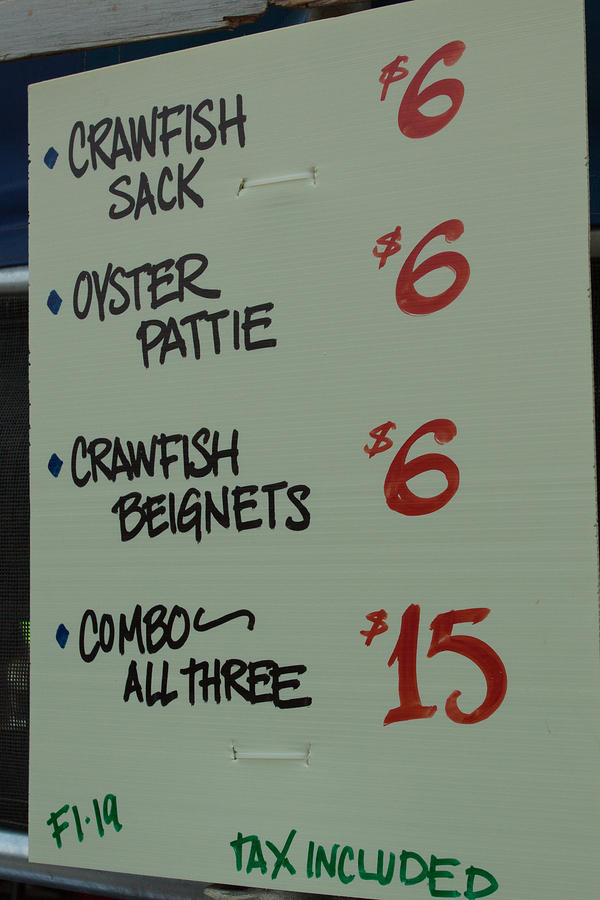 CRAWFISH $6
SACK
OYSTER $6
PATTIE
CRAWFISH $6
BEIGNETS
COMBO~ $15
ALL THREE
F1-19
TAX INCLUDED